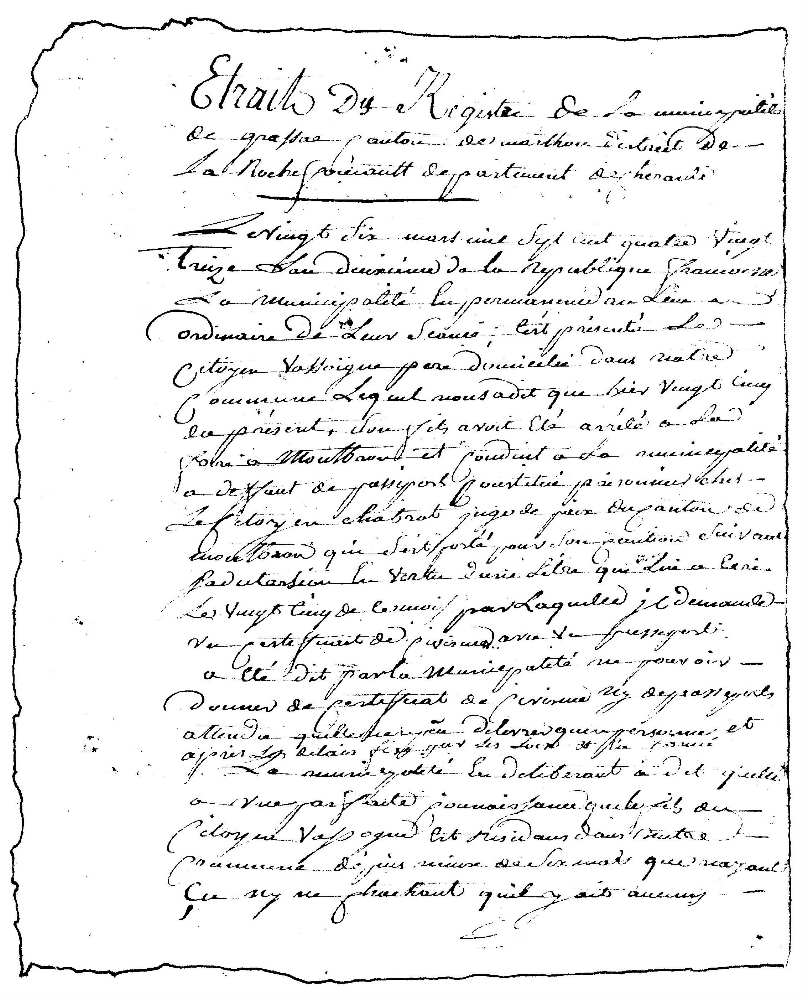 Etrait Du Registre de La municipalité
de grassac canton de marthon district de
La Rochefoucault departement de cherante
Le vingt Six mars mil Sept cent quatre vingt
treize L'an deuxieme de la republique francoise
La municipalité En permanence au Lieu
ordinaire de Leur Seance, C'est présenté Le
Citoyen Vassoigne pere domicilié dans notre
Commune Lequel nous a dit que hier vingt Cinq
du présent, Son fils avoit été arrété a La
foire a Montbron et conduit a La municipalité
a deffaut de passiport Constitué prisonnier ches
Le Citoyen chabrot juge de paix du canton de
montbron qui S'est porté pour Son caution Suivant
En vertu d'une Létre qu'il Lui a Ecrit
Le vingt Cinq de ce mois par Laquelle il demande
un certificat de civisme avec un passeport
a été dit par la Municipalité ne pouvoir
donner de certificat de Civisme ny de passeports
attendu quil delivrer personne et
après Les delais fixés par Les Loix
La municipalité En deliberant a dit qu'elle
a une parfaite connaissance que le fils du
Citoyen Vassogne Est residans dans nautre
commune depuis mieux de Six mois que nayant
Çu ny ne Chachant qu'il y ait aucuns